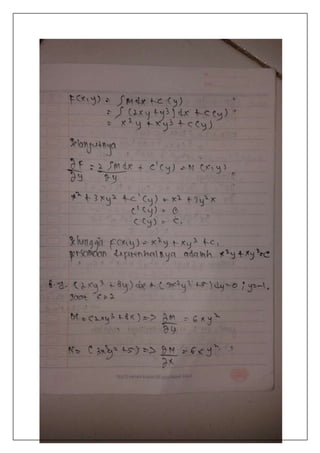 F(x,y) = ∫Mdx + c(y)
= ∫(2xy + y³)dx + c(y)
= x²y + xy³ + c(y)
Selanjutnya
∂F/∂y = ∂/∂y ∫Mdx + c'(y) = N(x,y)
x² + 3xy² + c'(y) = x² + 3y²x
c'(y) = 0
c(y) = c₁
Sehingga F(x,y) = x²y + xy³ + c₁
adalah x²y + xy³ = c
(2xy³ + 8x)dx + (3x²y² + 5)dy = 0 ; y=1,
x=2
M = (2xy³ + 8x) => ∂M/∂y = 6xy²
N = (3x²y² + 5) => ∂N/∂x = 6xy²